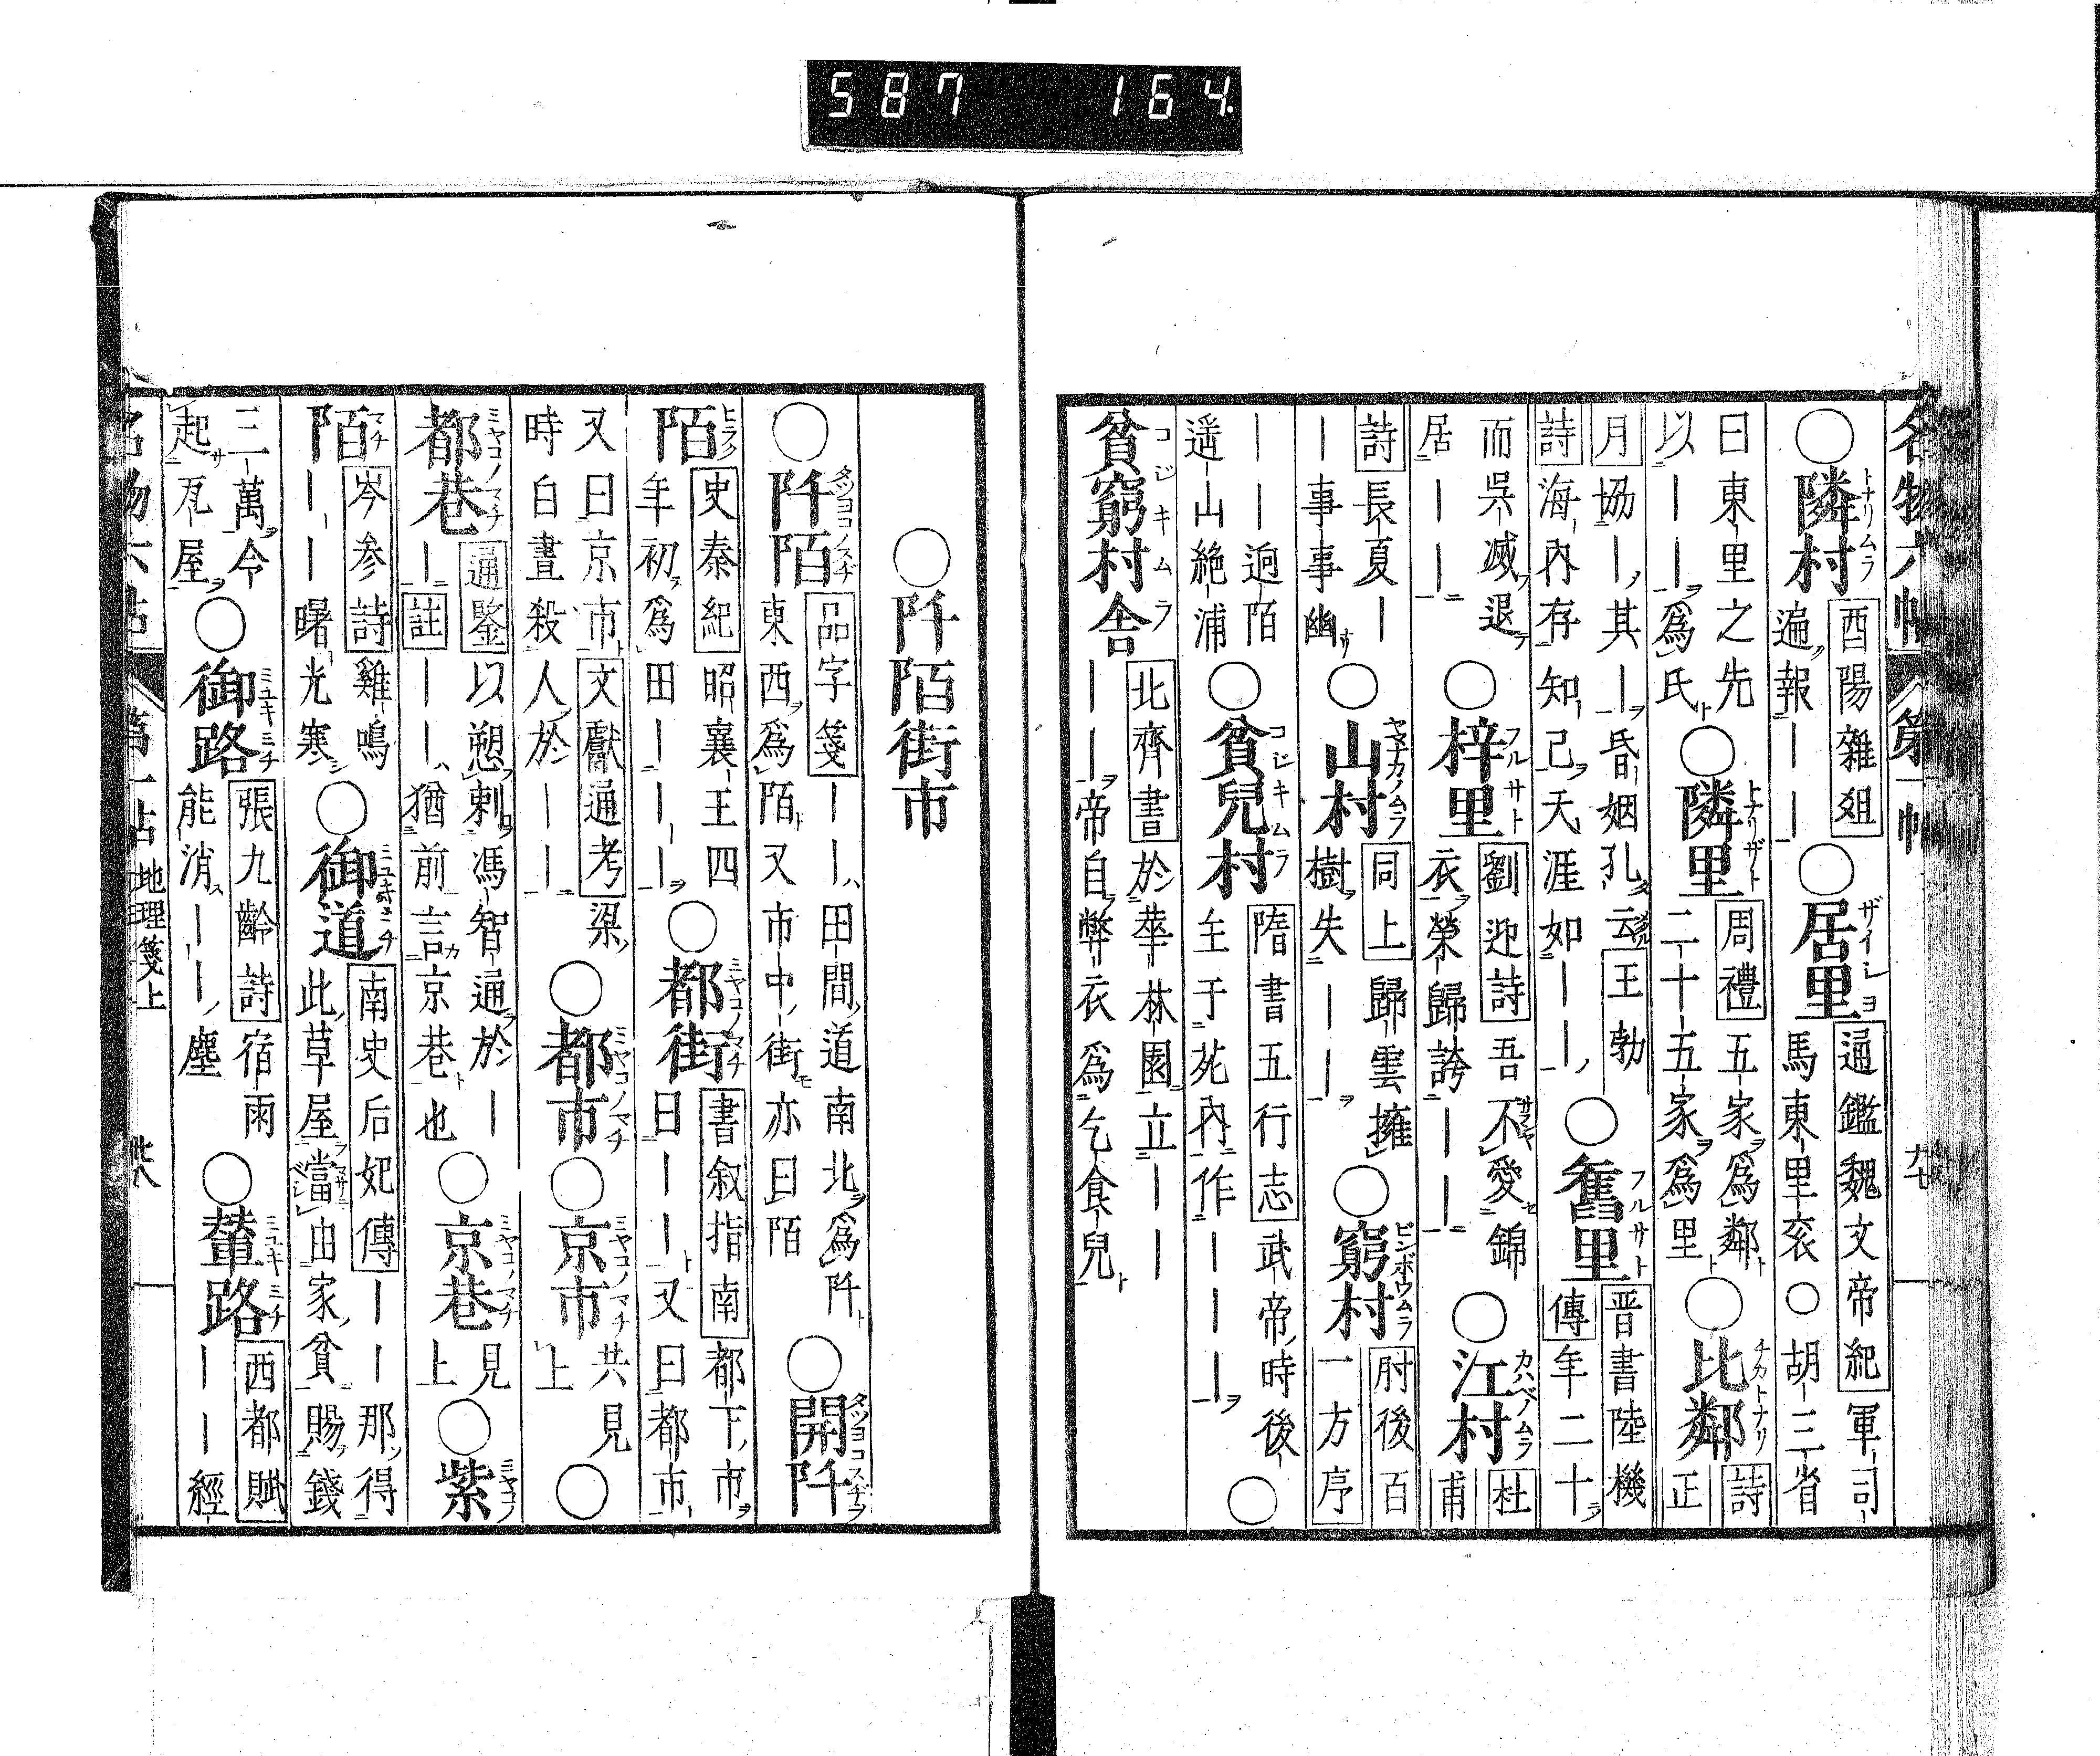 587 164
名物六帖 第一帖 九七
○隣村 トナリムラ 酉陽雜爼 遍報｜｜ ○居里 ザイシヨ 通鑑魏文帝紀 軍司馬東里袞○胡三省
曰東里之先以｜｜爲氏 ○隣里 トナリザト 周禮 五家爲鄰二十五家爲里 ○比鄰 チカトナリ 詩正
月 協｜其｜昏姻孔云 王勃詩 海內存知己天涯如｜｜ ○舊里 フルサト 晋書陸機傳 年二十
而吳滅退居｜｜ ○梓里 フルサト 劉迎詩 吾不愛錦衣榮歸誇｜｜ ○江村 カハベノムラ 杜甫
詩 長夏｜｜事事幽 ○山村 ヤマナカノムラ 同上 歸雲擁樹失｜｜ ○窮村 ビンボウムラ 肘後百一方序
｜｜迥陌遥山絶浦 ○貧兒村 コジキムラ 隋書五行志 武帝時後主于苑內作｜｜｜ ○
貧窮村舎 コジキムラ 北齊書 於華林園立｜｜｜｜帝自弊衣爲乞食兒
○阡陌街市
○阡陌 タツヨコノスヂ 品字箋 ｜｜田間道南北爲阡東西爲陌又市中街亦曰陌 ○開阡 タツヨコスヂヲ
陌 ヒラク 史秦紀 昭襄王四年初爲田｜｜｜ ○都街 ミヤコノマチ 書叙指南 都下市曰｜｜又曰都市
又曰京市 文獻通考 梁時白晝殺人於｜｜ ○都市 ミヤコノマチ ○京市 ミヤコノマチ 共見上 ○
都巷 ミヤコノマチ 通鑒 以愬剌馮智通於｜｜ 註 ｜｜猶前言京巷也 ○京巷 ミヤコノマチ 見上 ○紫 ミヤコノ
陌 マチ 岑参詩 雞鳴｜｜曙光寒 ○御道 ミユキミチ 南史后妃傳 ｜｜那得此草屋當由家貧賜錢
三萬令起瓦屋 ○御路 ミユキミチ 張九齡詩 宿雨能消｜｜塵 ○輦路 ミユキミチ 西都賦 ｜｜經
名物六帖 第一帖 地理箋上